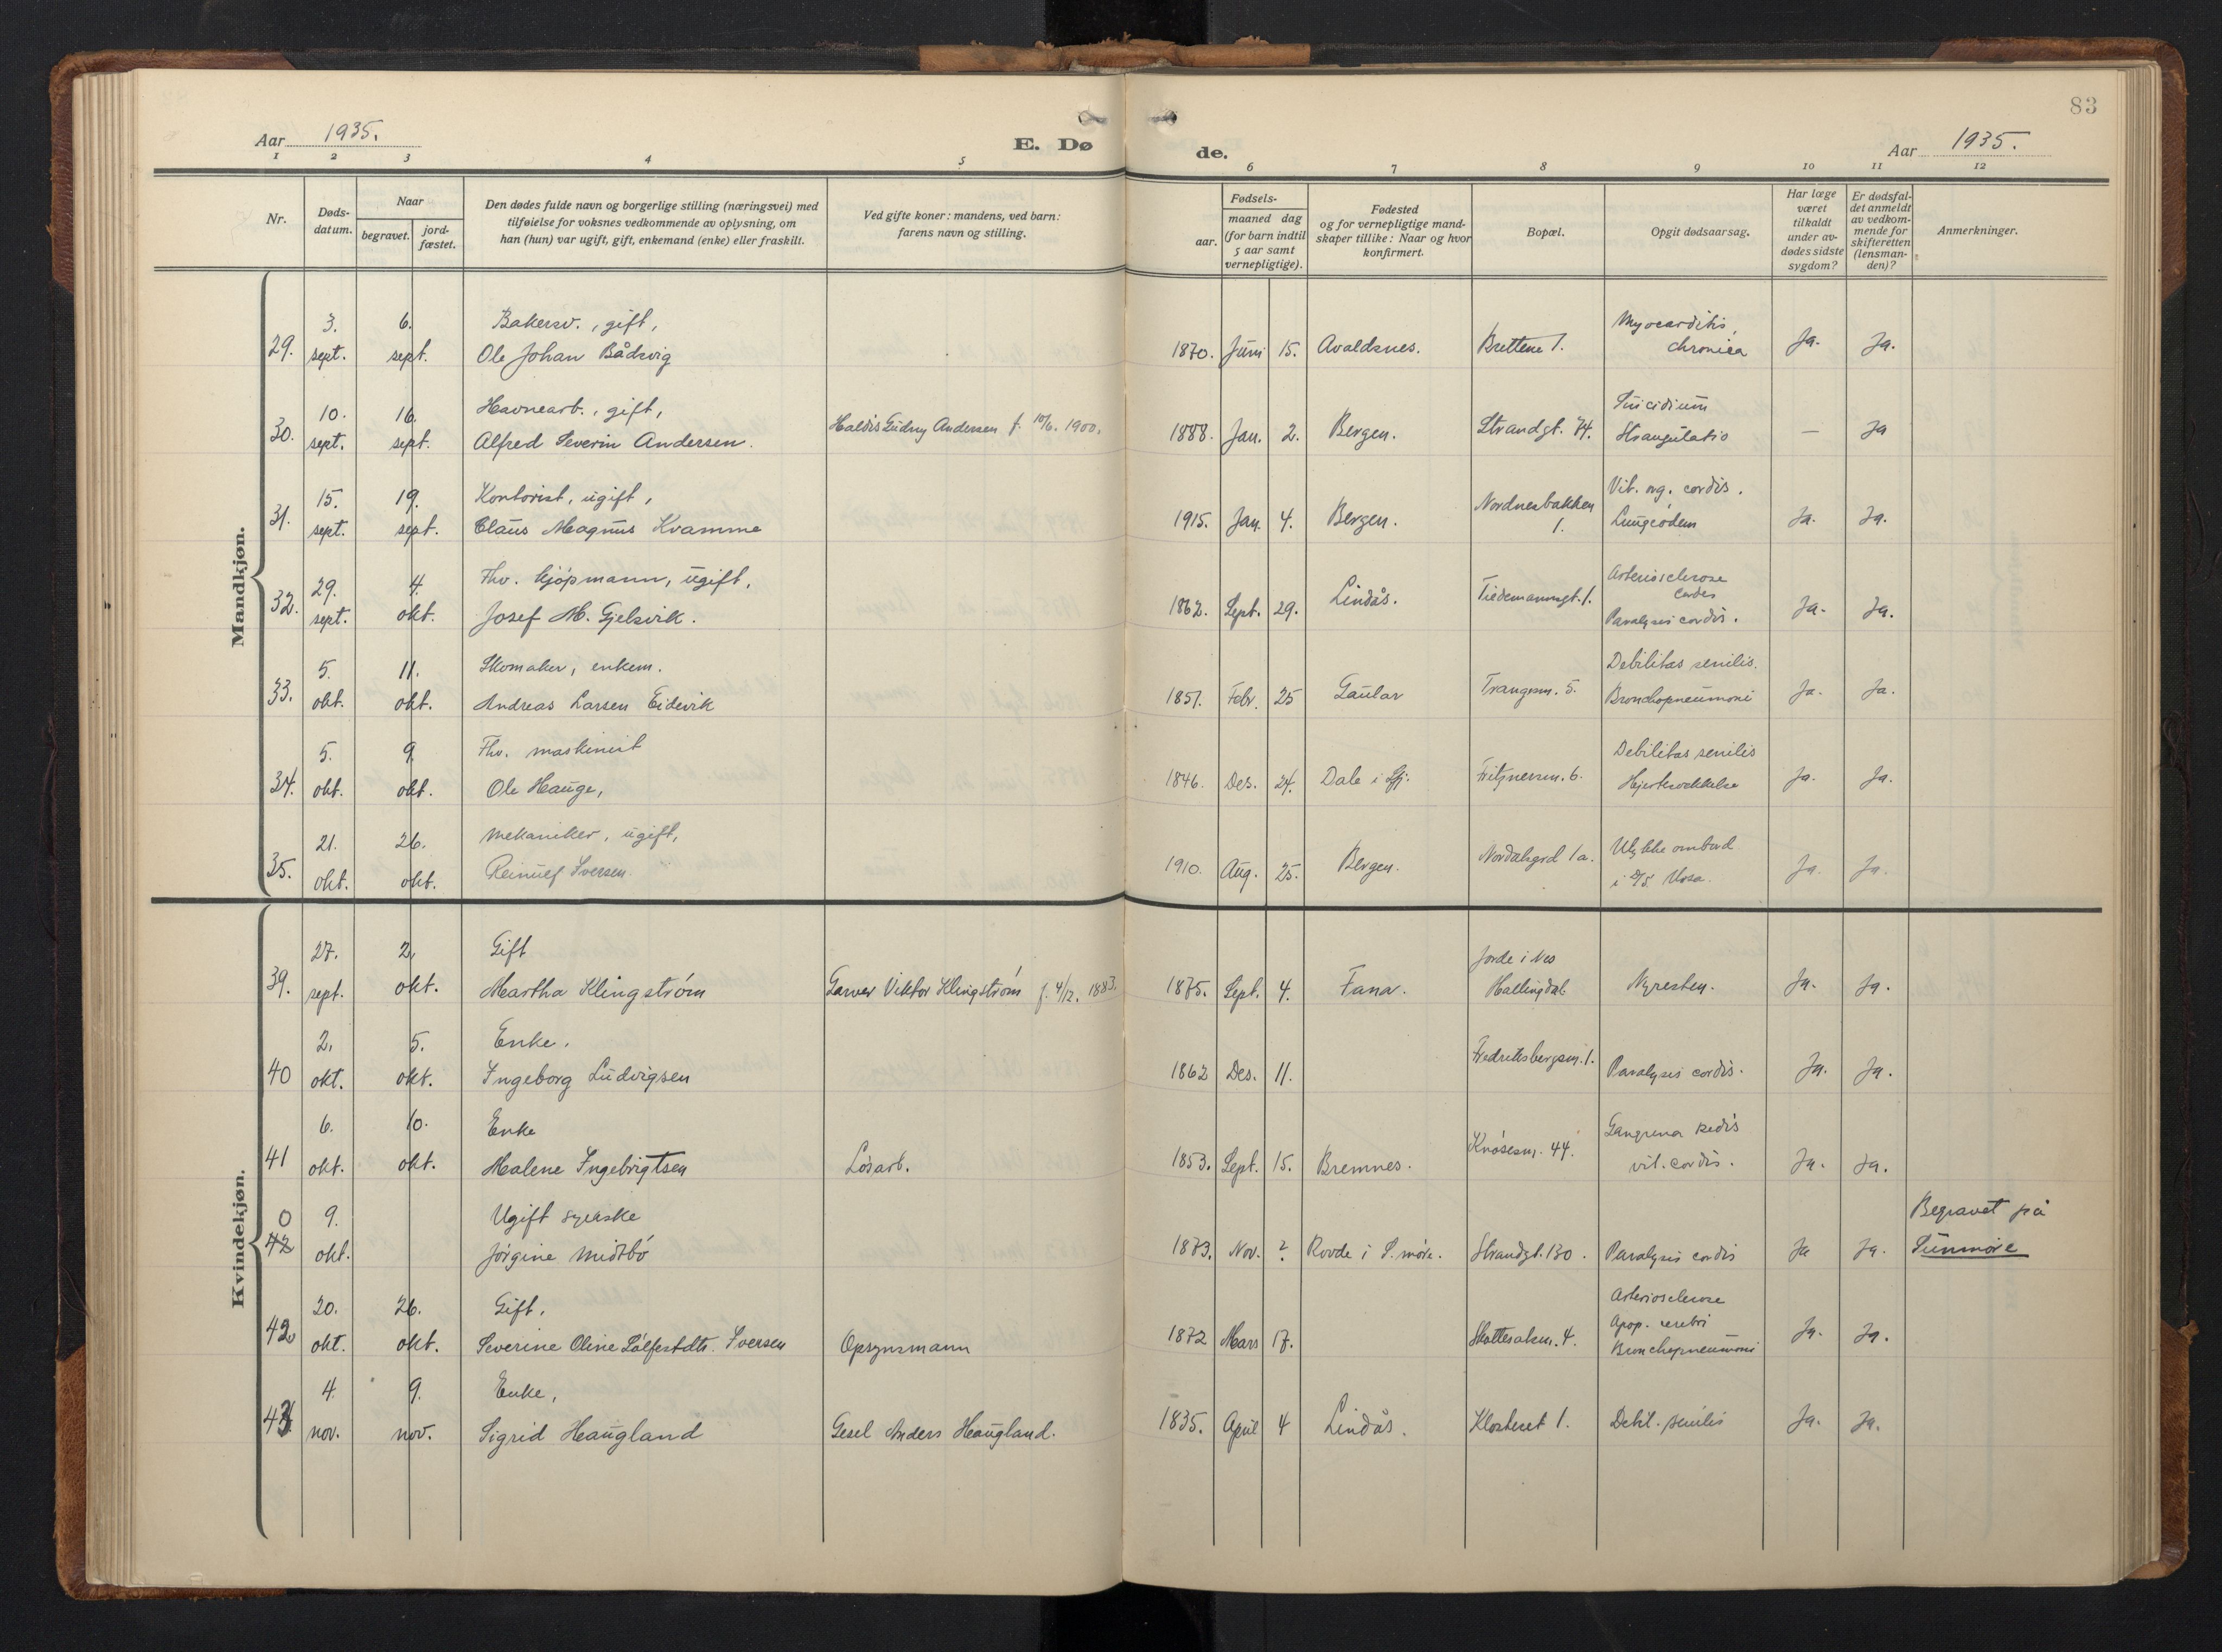 83
Aar 1935.
E. Dø
de.
Aar 1935.
1 2 3 4 5 6 7 8 9 10 11 12
Nr.
Døds-
datum.
Naar
begravet.
jord-
fæstet.
Den dødes fulde navn og borgerlige stilling (næringsvei) med
tilføielse for voksnes vedkommende av oplysning, om
han (hun) var ugift, gift, enkemand (enke) eller fraskilt.
Ved gifte koner: mandens, ved barn:
farens navn og stilling.
Fødsels-
aar.
maaned dag
(for barn indtil
5 aar samt
vernepligtige).
Fødested
og for vernepligtige mand-
skaper tillike: Naar og hvor
konfirmert.
Bopæl.
Opgit dødsaarsag.
Har læge
været
tilkaldt
under av-
dødes sidste
sygdom?
Er dødsfal-
det anmeldt
av vedkom-
mende for
skifteretten
(lensman-
den)?
Anmerkninger.
Mandkjøn.
3. 6. Bakersv., gift, Myocarditis,
29. sept. sept. Ole Johan Bådsvig 1870. Juni 15. Avaldsnes. Brettene 1. chronica Ja. Ja.
10. 16. Havnearb., gift, Suicidium
30. sept. sept. Alfred Severin Andersen. Haldis Gudny Andersen f. 10/6. 1900. 1888. Jan. 2. Bergen. Strandgt. 74. Strangulatio — Ja
15. 19. Kontorist, ugift, Nordnesbakken Vit. org. cordis.
31. sept. sept. Claus Magnus Kvamme 1915. Jan. 4. Bergen. 1. Lungeødem Ja. Ja.
29. 4. Fhv. kjøpmann, ugift, Arteriosclerose
cordis
32. sept. okt. Josef M. Gjelsvik. 1862. Sept. 29. Lindås. Tiedemannsgt. 1. Paralysis cordis. Ja. Ja.
5. 11. Skomaker, enkem. Debilitas senilis.
33. okt. okt. Andreas Larsen Eidevik 1851. Febr. 25 Gaular Trangesm. 5. Bronchopneumoni Ja. Ja.
5. 9. Fhv. maskinist Debilitas senilis
34. okt. okt. Ole Hauge, 1846. Des. 24. Dale i Sfj. Fritznersm. 6. Hjertesvekkelse Ja. Ja.
21. 26. Mekaniker, ugift, Ulykke ombord
35. okt. okt. Reinulf Iversen. 1910. Aug. 25. Bergen. Nordalsgrd 1a. i D/S Ja. Ja.
Kvindekjøn.
27. 2. Gift Jorde i Nes
39. sept. okt. Martha Klingstrøm Garver Viktor Klingstrøm f. 4/12. 1883. 1875. Sept. 4. Fana. Hallingdal Nyresten. Ja. Ja.
2. 5. Enke. Fredriksbergsm. 1.
40 okt. okt. Ingeborg Ludvigsen 1862 Des. 11. Paralysis cordis. Ja. Ja.
6. 10. Enke Knøsesm. 44. Gangrena pedis
41 okt. okt. Malene Ingebrigtsen Løsarb. 1853. Sept. 15. Bremnes. vit. cordis. Ja. Ja.
0 9. Ugift syerske Begravet på
42 okt. Jørgine Midtbø 1873. Nov. ? Rovde i S. møre. Strandgt. 130. Paralysis cordis Ja Ja. Sunnmøre
20. 26. Gift, Arteriosclerose
Apop. cerebri
42 okt. okt. Severine Oline Iversen Opsynsmann 1872 Mars 17. Skottesalsm. 4. Bronchopneumoni Ja. Ja.
4. 9. Enke,
43. nov. nov. Sigrid Haugland Gesel Anders Haugland. 1835. April 4 Lindås. Klosteret 1. Debil. senilis Ja. Ja.